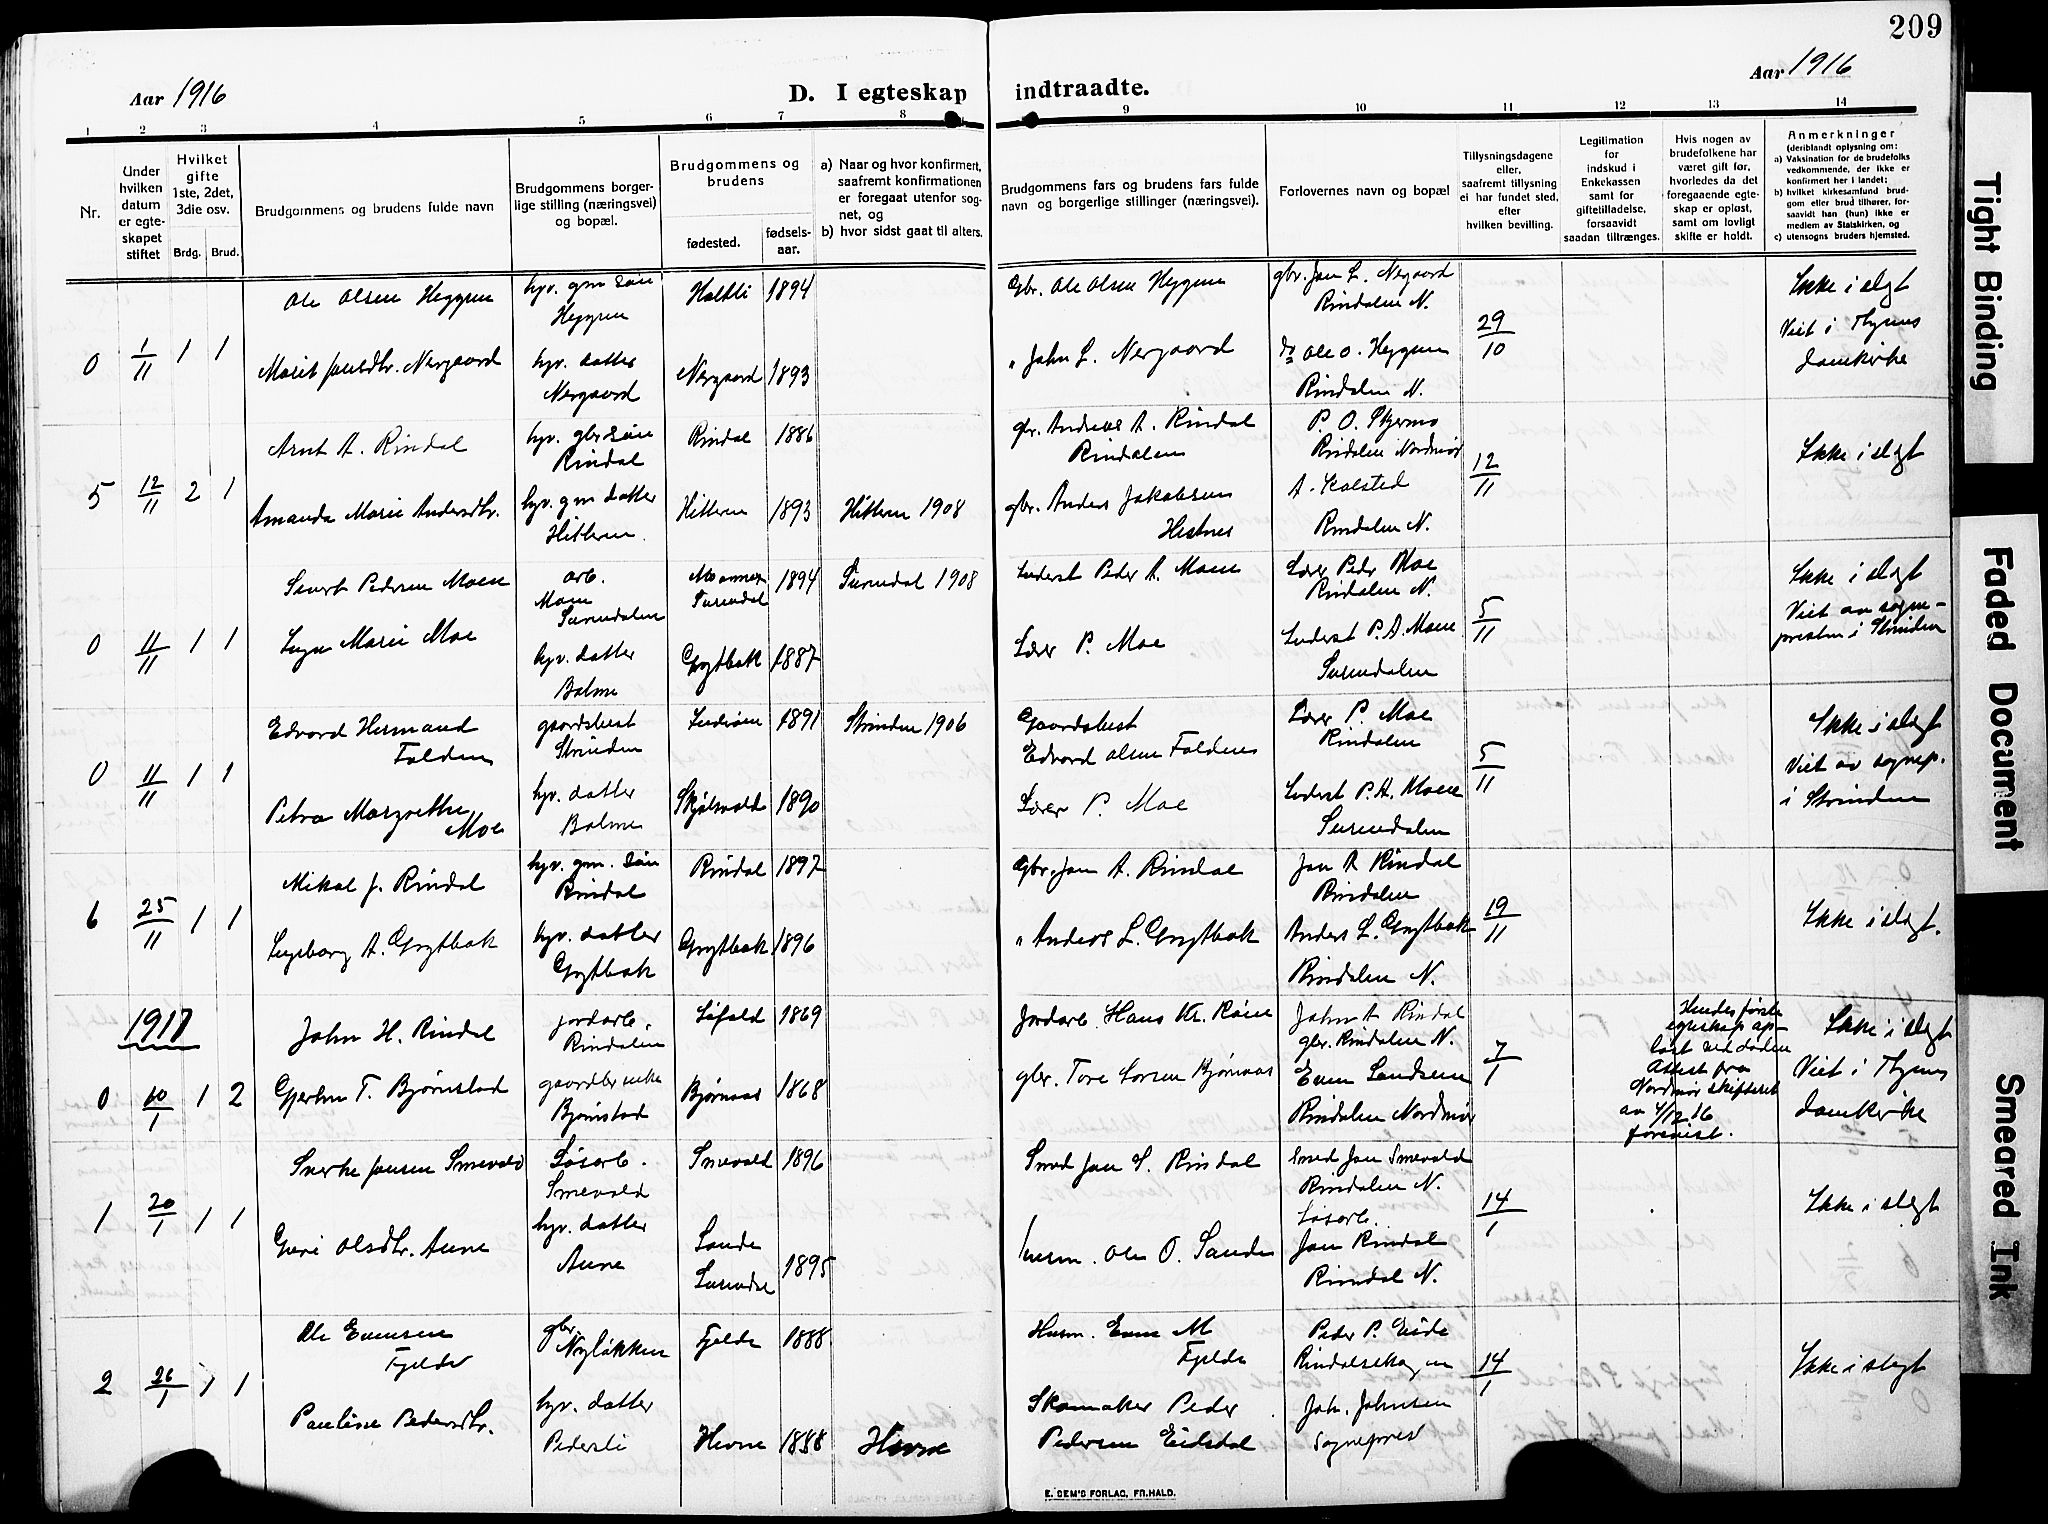 209
Aar 1916
D. I egteskap indtraadte.
Aar 1916
1 2 3 4 5 6 7 8 9 10 11 12 13 14
Nr.
Under hvilken datum er egteskapet stiftet
Hvilket gifte 1ste, 2det, 3die osv.
Brdg. Brud.
Brudgommens og brudens fulde navn
Brudgommens borgerlige stilling (næringsvei) og bopæl.
Brudgommens og brudens
fødested.
fødselsaar.
a) Naar og hvor konfirmert, saafremt konfirmationen er foregaat utenfor sognet, og
b) hvor sidst gaat til alters.
Brudgommens fars og brudens fars fulde navn og borgerlige stillinger (næringsvei).
Forlovernes navn og bopæl
Tillysningsdagene eller, saafremt tillysning ei har fundet sted, efter hvilken bevilling.
Legitimation for indskud i Enkekassen samt for giftetilladelse, forsaavidt saadan tiltrænges.
Hvis nogen av brudefolkene har været gift før, hvorledes da det foregaaende egteskap er opløst, samt om lovligt skifte er holdt.
Anmerkninger (deriblandt oplysning om:
a) Vaksination for de brudefolks vedkommende, der ikke er konfirmert her i landet;
b) hvilket kirkesamfund brudgom eller brud tilhører, forsaavidt han (hun) ikke er medlem av Statskirken, og
c) utensogns bruders hjemsted.
0 1/11 1 1
Ole Olsen Heggem hyv. gm søn Heggem 1894
Gbr. Ole Olsen Heggem gbr. Jon L. Nergaard Rindalen N. 29/10
Marit Jonsdtr. Nergaard hyv. datter Nergaard Nergaard 1893
" John L. Nergaard do Ole O. Heggem Rindalen N.
Ikke i slegt Viet i Thjems domkirke
5 12/11 2 1
Arnt A. Rindal hyv. gbr søn Rindal Rindal 1886
gbr. Andreas A. Rindal Rindalen P. O. Skjermo Rindalen Nordmør 12/11
Amanda Marie Andersdtr. hyv. gm datter Hitteren. Hitteren 1893 Hitteren 1908
gbr. Anders Jakobsen Hestnes A. Kalsted Rindalen N.
Ikke i slegt
0 11/11 1 1
Sivert Pedersen Moen arb. Moen Surendalen Surendal 1894 Surendal 1908
Inderst Peder A. Moen Lærer Peder Moe Rindalen N. 5/11
Marie Moe hyv. datter Bolme Grytbak 1887
Lærer P. Moe Inderst P. A. Moen Surendalen
Ikke i slegt Viet av sogne- presten i Strinden
0 11/11 1 1
Edvard Hermand Folden gaardsbest Strinden Inderøen 1891 Strinden 1906
Gaardsbest Edvard Olsen Foldens Lærer P. Moe Rindalen 5/11
Petra Margrethe Moe hyv. datter Bolme Skjølsvold 1890
Lærer P. Moe Inderst P. A. Moen Surendalen
Ikke i slegt Viet av sognep. i Strinden
6 25/11 1 1
Mikal J. Rindal hyv. gm. søn Rindal Rindal 1897
Gbr. Jon A. Rindal Jon A Rindal Rindalen 19/11
Ingeborg A. Grytbak hyv. datter Grytbak Grytbak 1896
" Anders L. Grytbak Anders L. Grytbak Rindalen N.
Ikke i slegt.
1917
0 10/1 1 2
John H. Rindal jordarb. Rindalen Løfald 1869
Jordarb. Hans Kr. Røen John A Rindal gbr. Rindalen N. 7/1
Gjertru T. Bjørnstad gaardbr enke Bjørnstad Bjørnaas 1868
gbr. Tore Larsen Bjørnaas Even Landsem Rindalen Nordmør
Hendes første egteskap op- løst ved døden Attest fra Nordmør skifteret av 4/12 16 forevist.
Ikke i slegt Viet i Thjems domkirke
1 20/1 1 1
Sverke Jonsen Smevold Løsarb. Smevold Smevold 1896
Smed Jon S. Rindal Smed Jon Smevold Rindalen N. 14/1
Guri Olsdtr. Aune hyv. datter Aune Sande Surendal 1895
husm. Ole O. Sande Løsarb. Jon Rindal Rindal N.
Ikke i slegt
2 26/1 1 1
Ole Evensen Fjelde gbr Nyløkken Fjelde 1888
Husm. Even M Fjelde Peder P. Eide Rindalsskogen 14/1
Pauline Pedersdtr. hyv. datter Pedersli Hevne 1888 Hevne
Skomaker Peder Pedersen Eidsdal Joh. Johnsen Sogneprest
Ikke i slegt
E. SEM'S FORLAG, FR.HALD.
Tight Binding
Faded Document
Smeared Ink